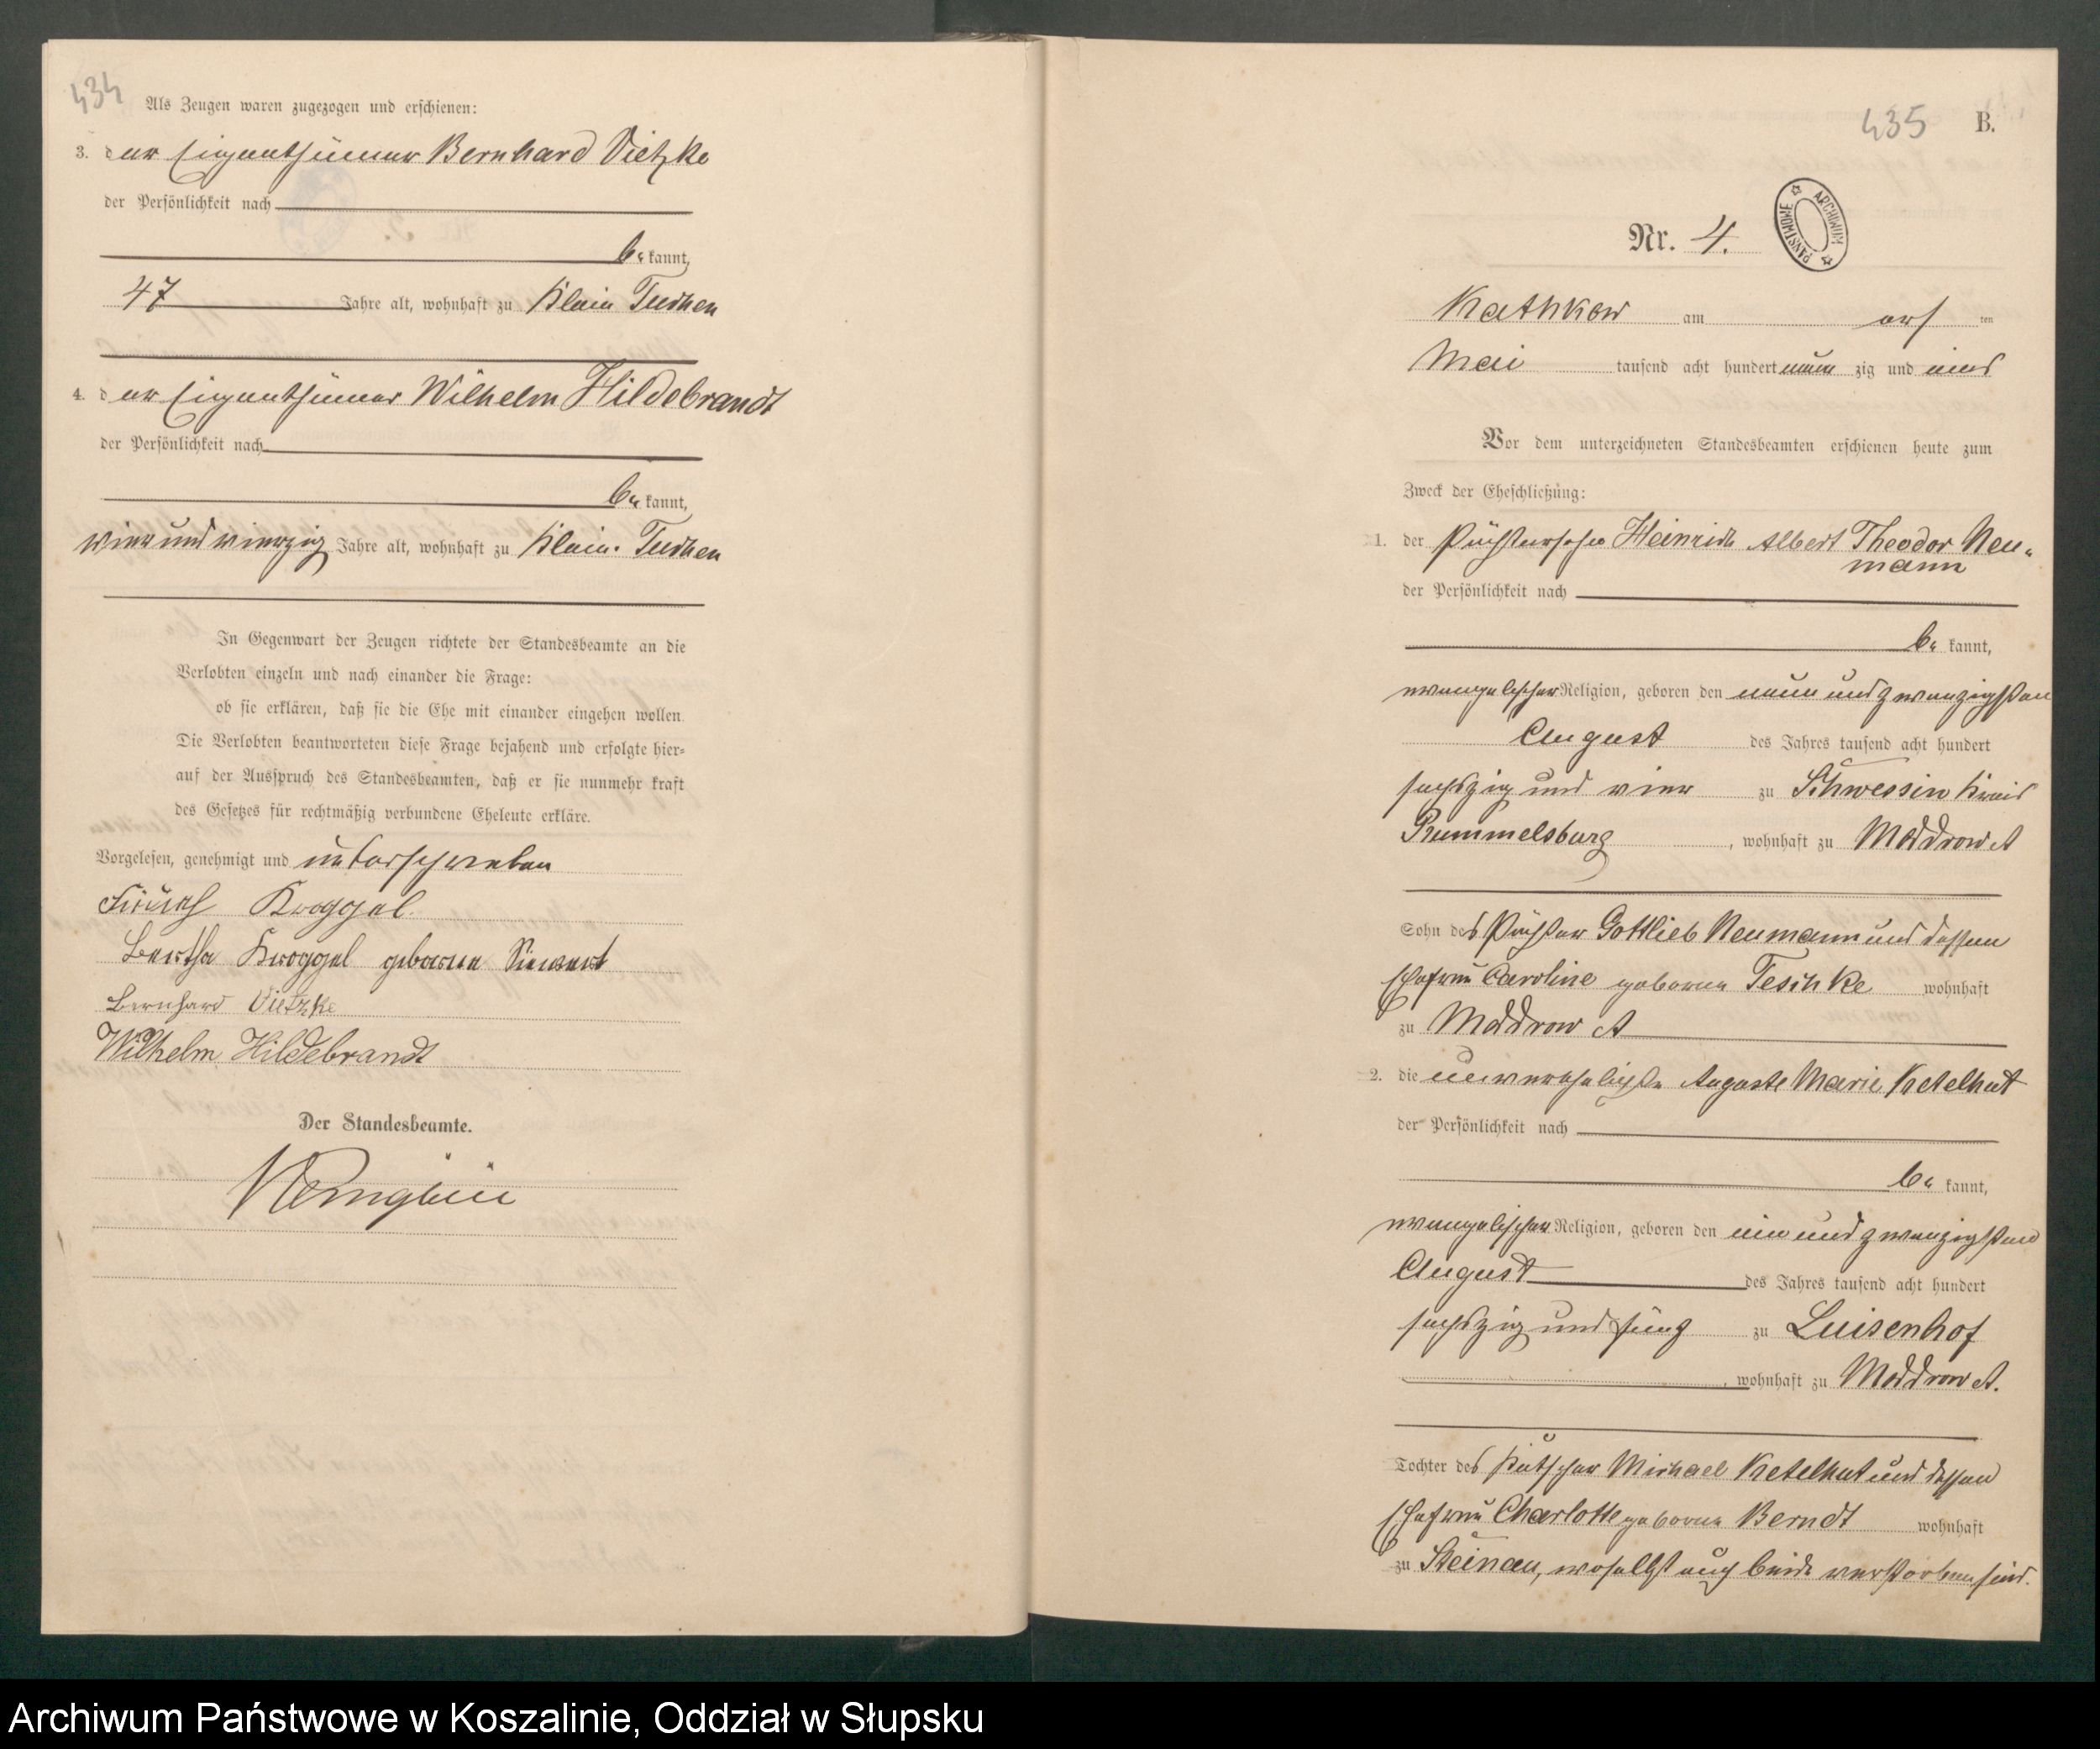 434
Als Zeugen waren zugezogen und erschienen:
3. der Eigenthümer Bernhard Vietzke
der Persönlichkeit nach
be kannt,
47 Jahre alt, wohnhaft zu Klein Tuchen
4. der Eigenthümer Wilhelm Hildebrandt
der Persönlichkeit nach
be kannt,
vier und vierzig Jahre alt, wohnhaft zu Klein Tuchen
In Gegenwart der Zeugen richtete der Standesbeamte an die
Verlobten einzeln und nach einander die Frage:
ob sie erklären, daß sie die Ehe mit einander eingehen wollen.
Die Verlobten beantworteten diese Frage bejahend und erfolgte hier=
auf der Ausspruch des Standesbeamten, daß er sie nunmehr kraft
des Gesetzes für rechtmäßig verbundene Eheleute erkläre.
Vorgelesen, genehmigt und unterschrieben
Kroggel
Bertha Kroggel geborene Siewert
Bernhard Vietzke
Wilhelm Hildebrandt
Der Standesbeamte.
435 B.
Nr. 4.
ARCHIWUM PAŃSTWOWE
Kathkow am ers ten
Mai tausend acht hundert neun zig und eins
Vor dem unterzeichneten Standesbeamten erschienen heute zum
Zweck der Eheschließung:
1. der Heinrich Albert Theodor Neu=
mann
der Persönlichkeit nach
be kannt,
evangelischer Religion, geboren den neun und zwanzigsten
August des Jahres tausend acht hundert
sechszig und vier zu Schwessin Kreis
Rummelsburg, wohnhaft zu Moddrow A
Sohn des Gottlieb Neumann und dessen
Ehefrau Caroline geborene Teschke wohnhaft
zu Moddrow A
2. die unverehelichte Auguste Marie Ketelhut
der Persönlichkeit nach
be kannt,
evangelischer Religion, geboren den ein und zwanzigsten
August des Jahres tausend acht hundert
sechszig und fünf zu Luisenhof
, wohnhaft zu Moddrow A.
Tochter des Kutscher Michael Ketelhut und dessen
Ehefrau Charlotte geborene Berndt wohnhaft
zu Steinau, woselbst auch beide verstorben sind.
Archiwum Państwowe w Koszalinie, Oddział w Słupsku